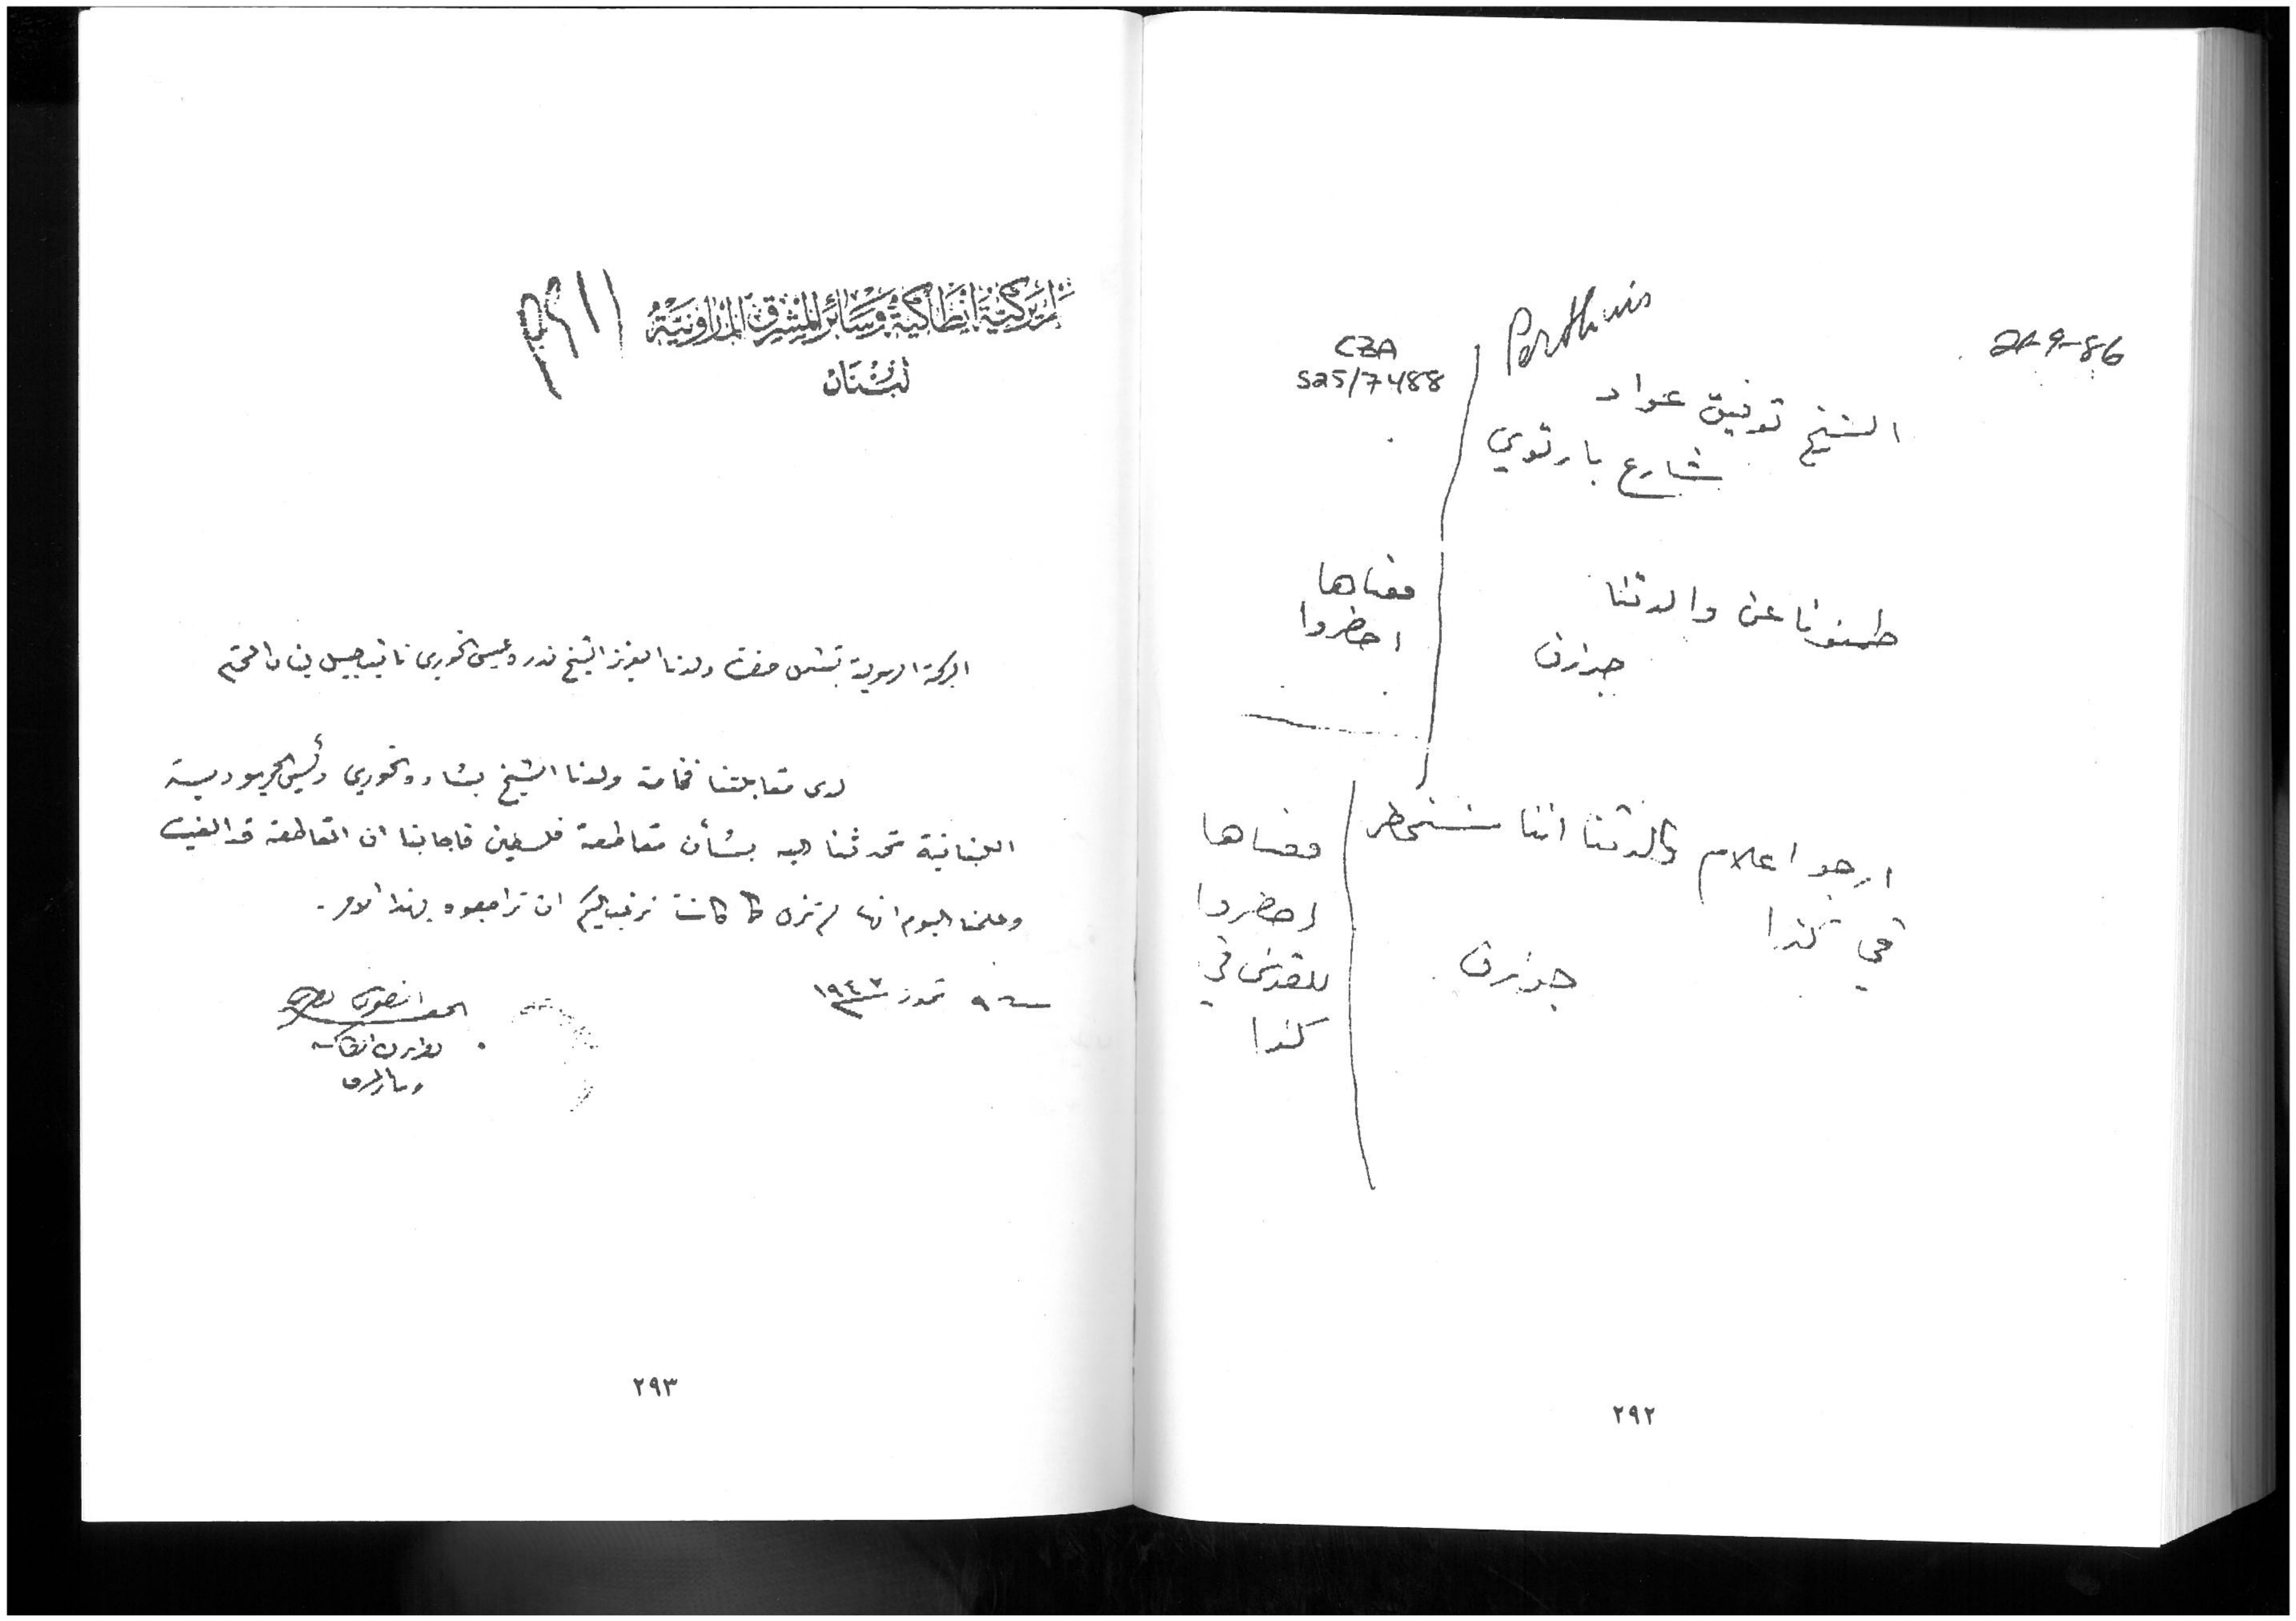 21-9-86
Perthuis
CZA
S25/7488
الشيخ توفيق عواد
شارع بارتوي
طمنونا عن والدتنا
جوزرف
معناها
احضروا
ارجو اعلام والدتنا اننا سنحضر
في كذا
جوزرف
معناها
احضروا
للقدس في
كذا
٢٩٢
بطريركية انطاكية وسائر المشرق المارونية
لبنان
البركة الرسولية تشمل حضرة ولدنا العزيز الشيخ عيسى الخوري نائب لبنان المحترم
لدى مقابلتنا فخامة ولدنا الشيخ بشاره الخوري رئيس الجمهورية
اللبنانية تحدثنا اليه بشأن مقاطعة فلسطين فاجابنا ان المقاطعة قد الغيت
وعلمنا اليوم انها لم تزل كما كانت نرغب اليكم ان تراجعوه بهذا الامر .
في ٩ تموز سنة ١٩٤٧
انطون
بطريرك انطاكية
وسائر المشرق
٢٩٣